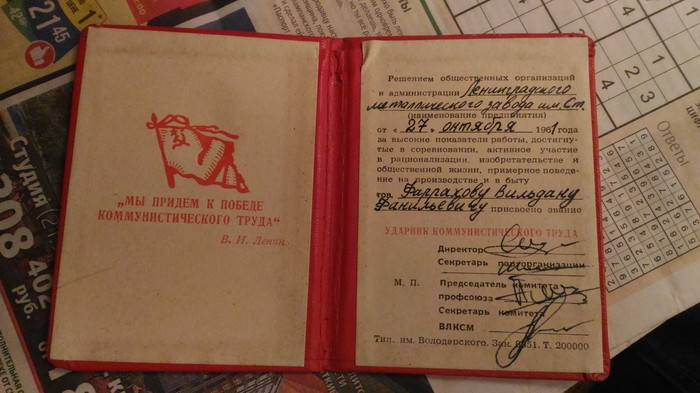 „МЫ ПРИДЕМ К ПОБЕДЕ
КОММУНИСТИЧЕСКОГО ТРУДА"
В. И. Ленин.
Решением общественных организаций
и администрации Ленинградского
металлического завода им. Ст.
(наименование предприятия)
от « 27 » октября 1961 года
за высокие показатели работы, достигну-
тые в соревновании, активное участие
в рационализации, изобретательстве и
общественной жизни, примерное поведе-
ние на производстве и в быту
тов. Фаррахову Вильдану
Фанильевичу присвоено звание
УДАРНИК КОММУНИСТИЧЕСКОГО ТРУДА
Директор
Секретарь парторганизации
М. П. Председатель комитета
профсоюза
Секретарь комитета
ВЛКСМ
Тип. им. Володарского. Зак. Т. 200000
Студия
308 402
руб.
21 45